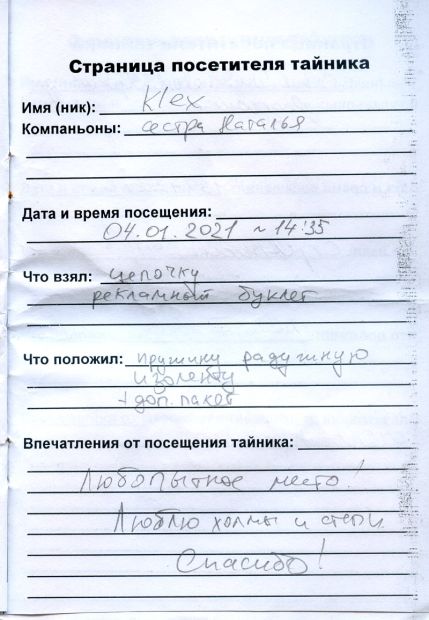 Страница посетителя тайника
Имя (ник): Klex
Компаньоны: сестра Наталья
Дата и время посещения:
04.01.2021 ~ 14:35
Что взял: цепочку
рекламный буклет
Что положил: пружину радужную
изоленту
+ доп. пакет
Впечатления от посещения тайника:
Любопытное место!
Люблю холмы и степи.
Спасибо!